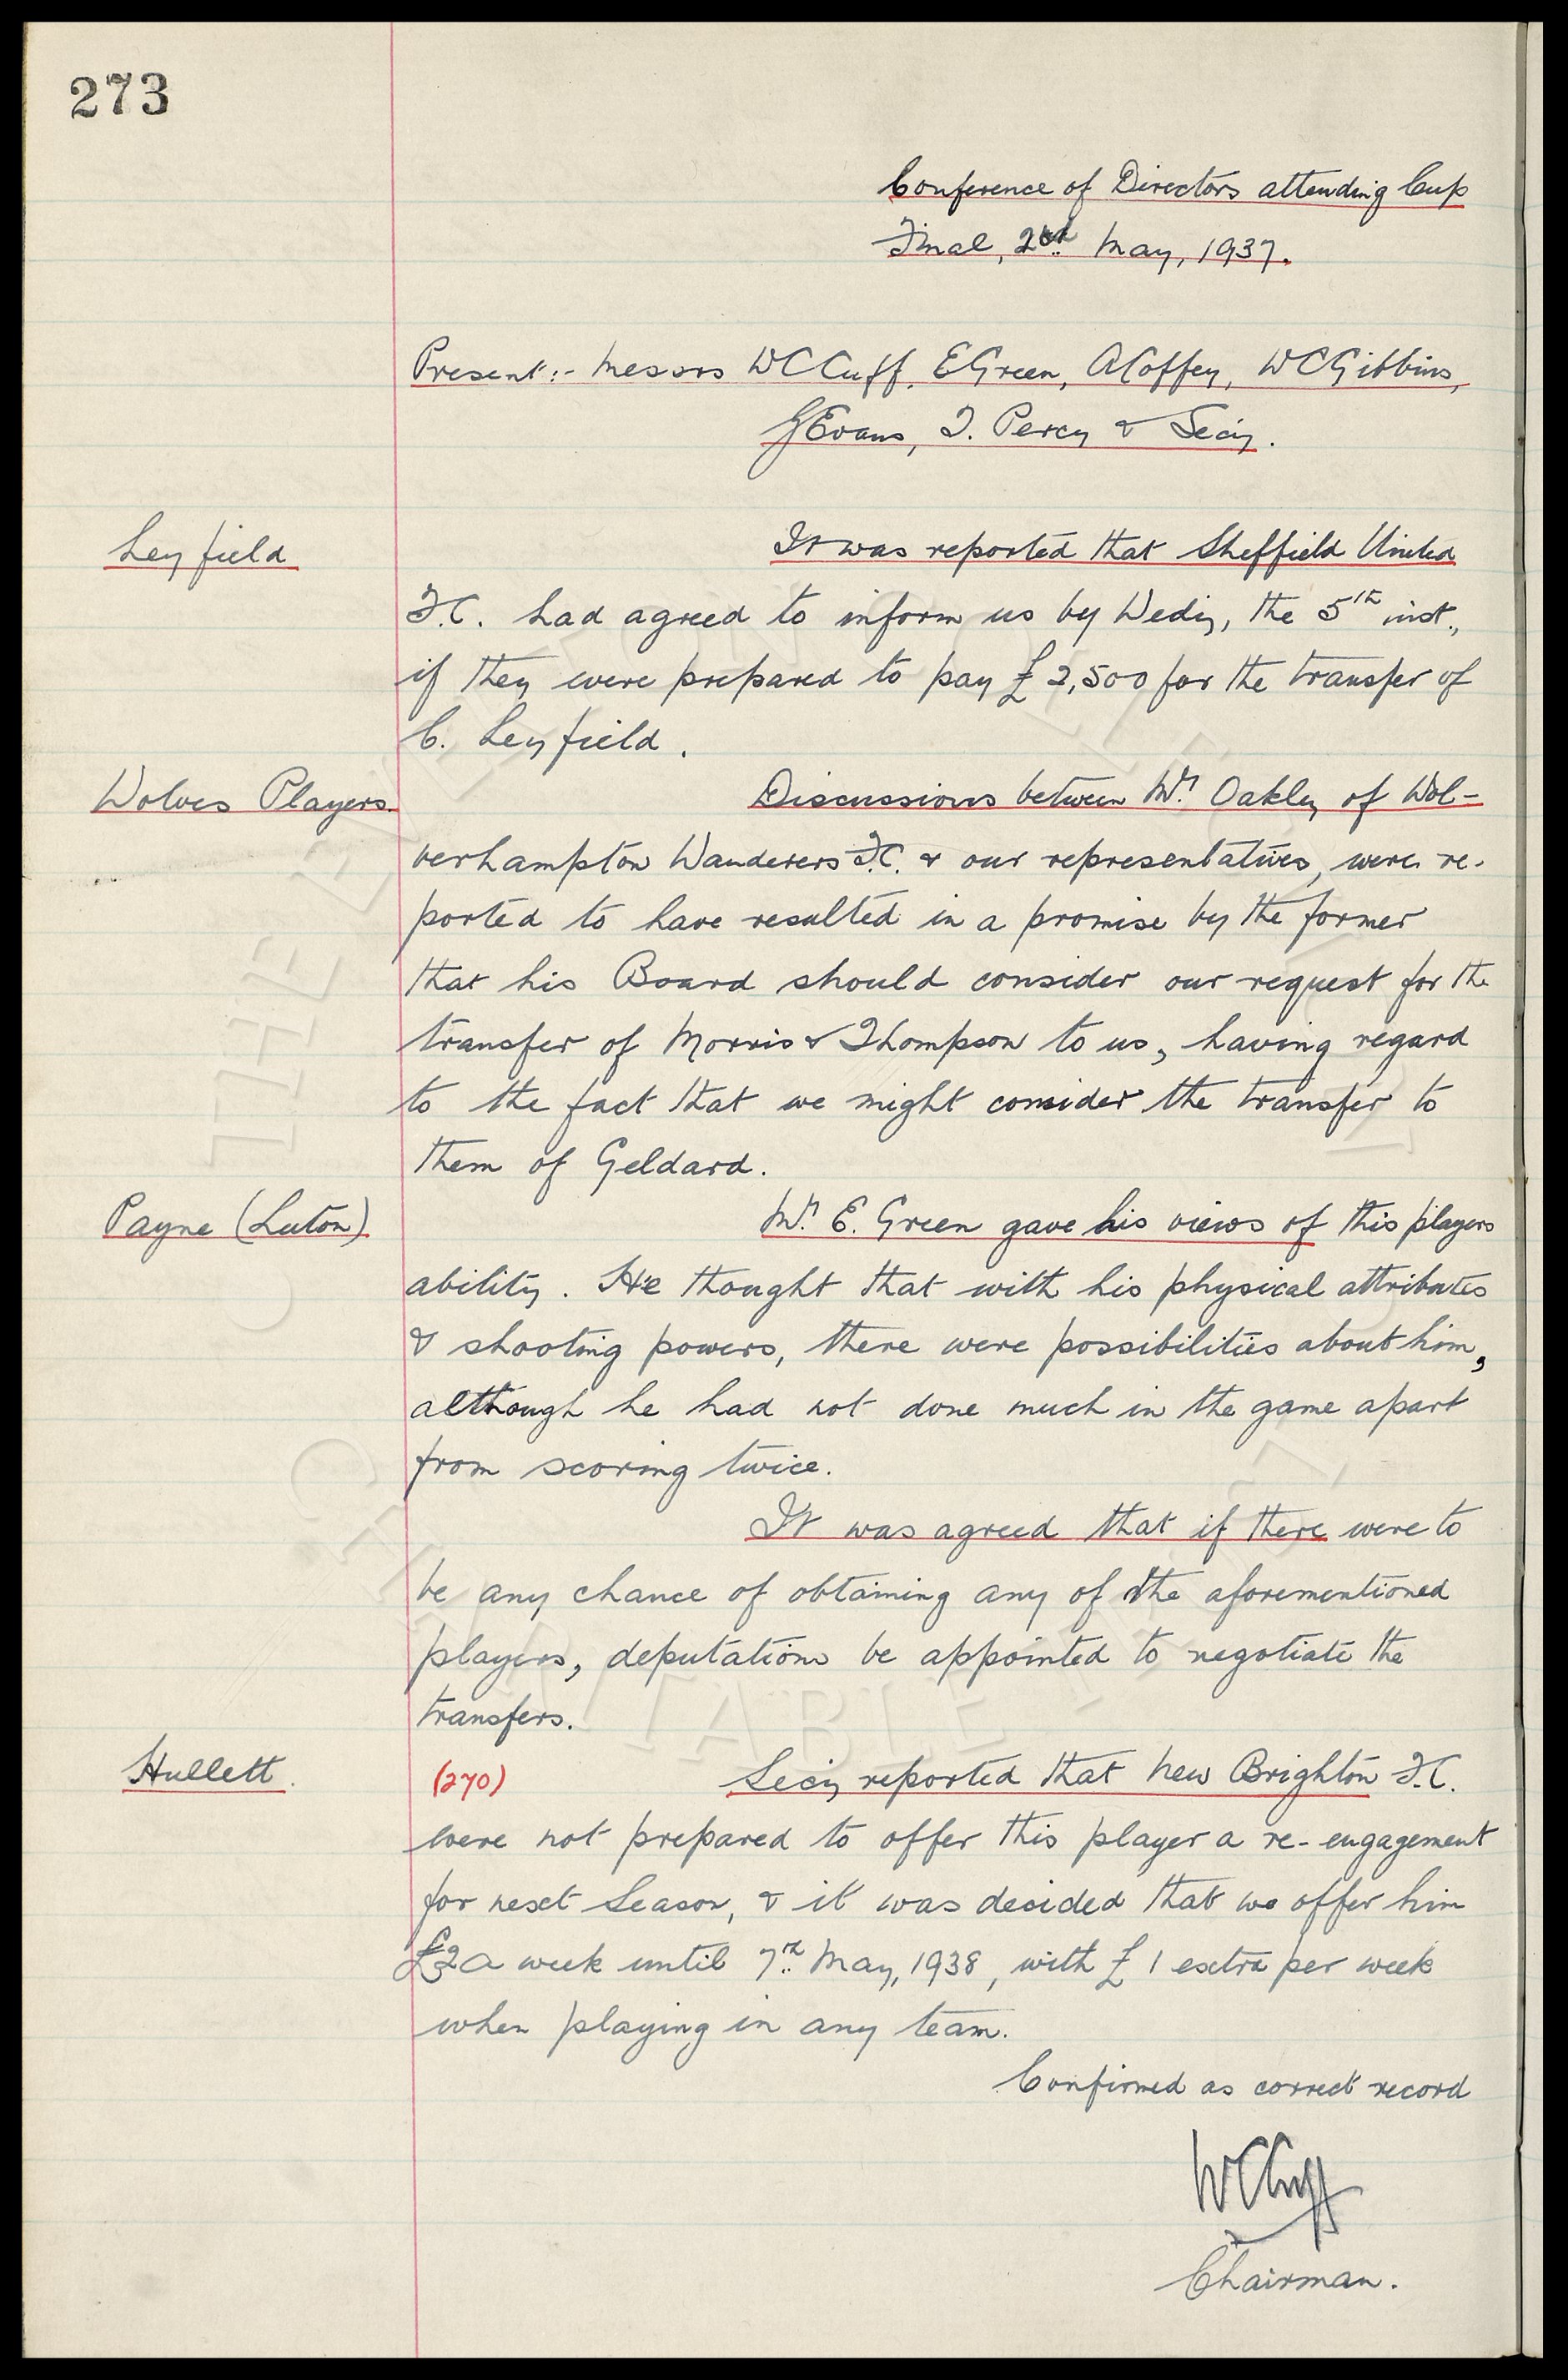 273
Conference of Directors attending Cup
Final, 2nd May, 1937.
Present:- Messrs W C Cuff, E Green, A Coffey, W C Gibbins,
G Evans, T. Percy & Secy.
Leyfield
It was reported that Sheffield United
F.C. had agreed to inform us by Wedy, the 5th inst.,
if they were prepared to pay £2,500 for the transfer of
C. Leyfield.
Wolves Players
Discussions between Mr. Oakley of Wol-
verhampton Wanderers F.C. & our representatives, were re-
ported to have resulted in a promise by the former
that his Board should consider our request for the
transfer of Morris & Thompson to us, having regard
to the fact that we might consider the transfer to
them of Geldard.
Payne (Luton)
Mr. E. Green gave his views of this players
ability. He thought that with his physical attributes
& shooting powers, there were possibilities about him,
although he had not done much in the game apart
from scoring twice.
It was agreed that if there were to
be any chance of obtaining any of the aforementioned
players, deputations be appointed to negotiate the
transfers.
Hullett.
(270) Secy reported that New Brighton F.C.
were not prepared to offer this player a re-engagement
for next Season, & it was decided that we offer him
£3 a week until 7th May, 1938, with £1 extra per week
when playing in any team.
Confirmed as correct record
W C Cuff
Chairman.